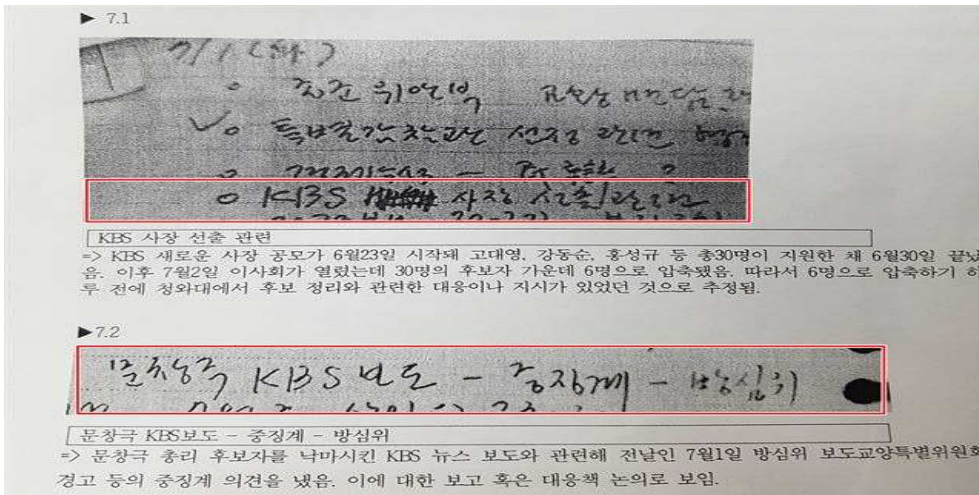 ▶ 7.1
7/1 (화)
○ KBS 사장 선출 관련
KBS 사장 선출 관련
=> KBS 새로운 사장 공모가 6월23일 시작돼 고대영, 강동순, 홍성규 등 총30명이 지원한 채 6월30일 끝났
음. 이후 7월2일 이사회가 열렸는데 30명의 후보자 가운데 6명으로 압축됐음. 따라서 6명으로 압축하기 하
투 전에 청와대에서 후보 정리와 관련한 대응이나 지시가 있었던 것으로 추정됨.
▶7.2
문창극 KBS 보도 - 중징계 - 방심위
문창극 KBS보도 - 중징계 - 방심위
=> 문창극 총리 후보자를 낙마시킨 KBS 뉴스 보도와 관련해 전날인 7월1일 방심위 보도교양특별위원회
경고 등의 중징계 의견을 냈음. 이에 대한 보고 혹은 대응책 논의로 보임.